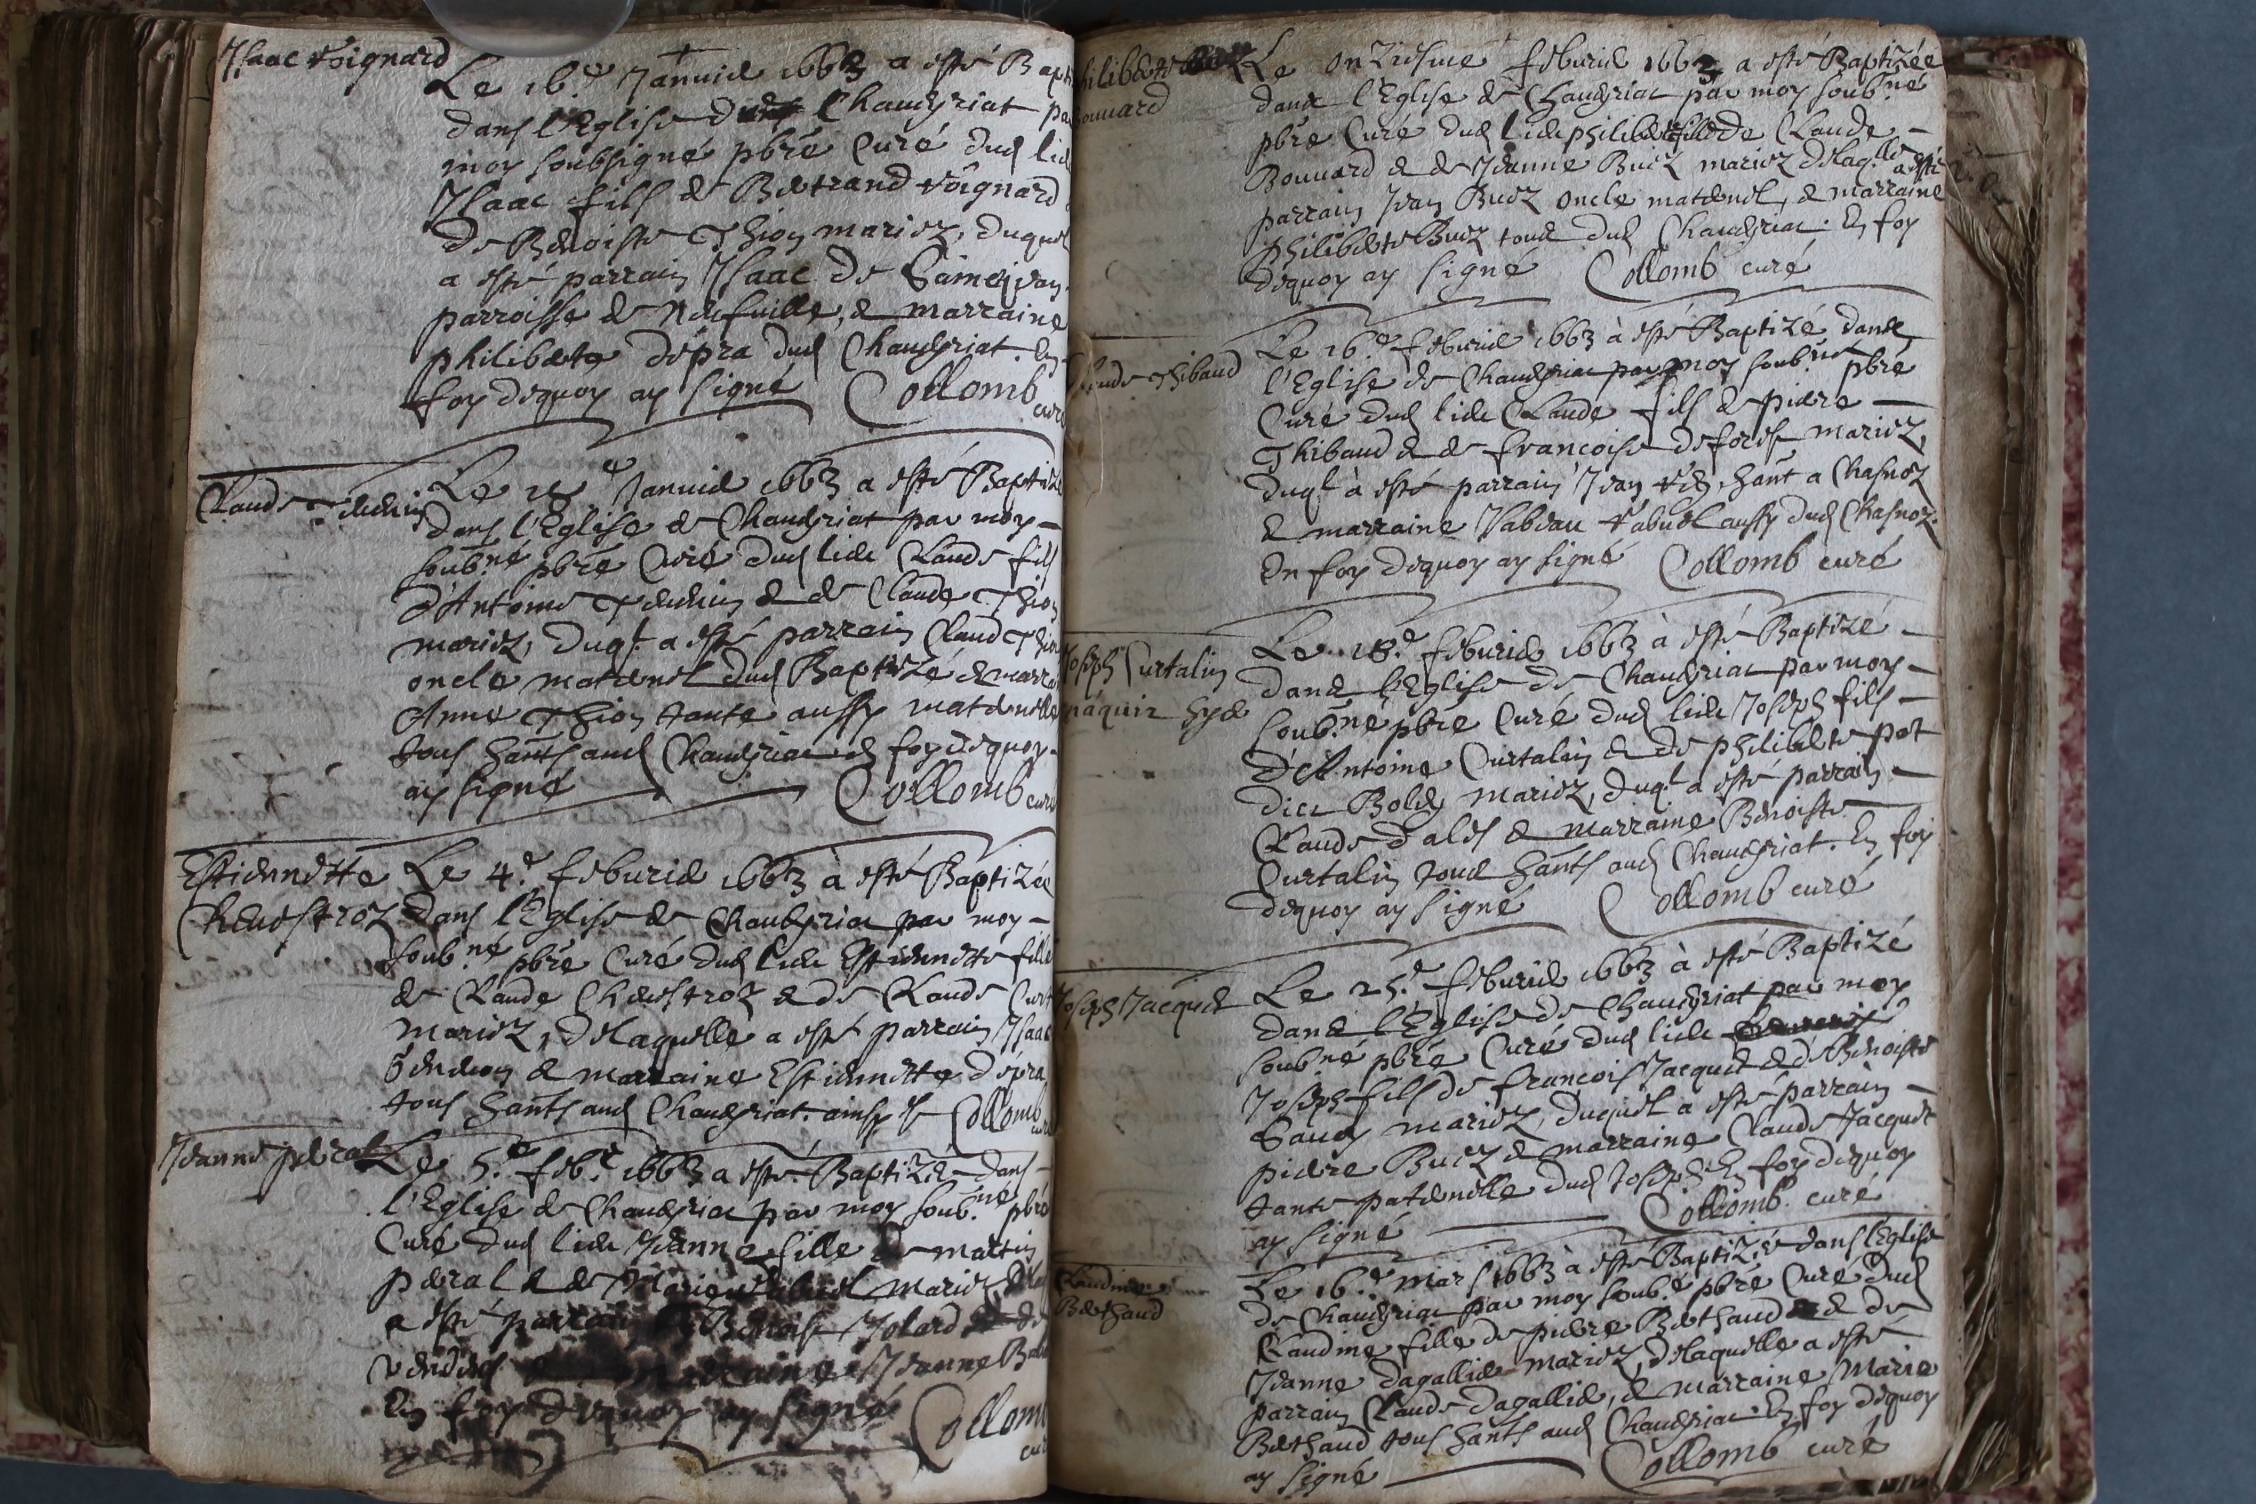 Isaac Voignard
Le 16.e Janvier 1663 a esté Bapti
dans l'Eglise de Chaveyriat pa
moy soubsigné pbre Curé dud lieu
Isaac fils de Bertrand Voignard
de Benoiste Thion mariez, duquel
a esté parrain Isaac de
parroisse de Neufville, & marraine
philiberte dépra dud Chaveyriat. En
foy dequoy ay signé Collomb
curé
Claude
Le Janvier 1663 a esté Baptizé
dans l'Eglise de Chaveyriat par moy
soub.né pbre Curé dud lieu Claude fils
d'Antoine & de Claude Thion
mariez, duql a esté parrain Claud Thion
oncle maternel dud Baptizé & marrai
Anne Thion tante aussy maternelle
tous hants aud Chaveyriat en foy dequoy
ay signé Collomb curé
Estiennette
Chevestroz
Le 4.e febvrier 1663 à esté Baptizée
dans l'Eglise de Chaveyriat par moy
soub.né pbre Curé dud lieu Estiennette fille
de Claude Chevestroz & de Claude Curt
mariez, delaquelle a esté parrain Isaac
& marraine Estiennette dépra
tous hants aud Chaveyriat. ainsy est Collomb
curé
Jeanne perral
Le 5.e feb.r 1663 a esté Baptizée dans
l'Eglise de Chaveyriat par moy soub.né pbre
Curé dud lieu Jeanne fille de martin
perral & de Marie mariez
a esté parrain Benoist Jolard
marraine Jeanne
En foy dequoy ay signé Collomb
curé
philiberte
Bouvard
Le onziesme febvrier 1663 a esté Baptizée
dans l'Eglise de Chaveyriat par moy soub.né
pbre Curé dud lieu philiberte fille de Claude
Bouvard & de Jeanne Buez mariez delaq.lle a esté
parrain Jean Buez oncle maternel, & marraine
philiberte Buez tous dud Chaveyriat. En foy
dequoy ay signé Collomb curé
Claude Thibaud
Le 16.e febvrier 1663 à esté Baptizé dans
l'Eglise de Chaveyriat par moy soub.né pbre
Curé dud lieu Claude fils de pierre
Thibaud & de francoise deforest mariez,
duql à esté parrain Jean hant a Chasnoz
& marraine Isabeau Vabuel aussy dud Chasnoz.
En foy dequoy ay signé Collomb curé
Joseph Curtalin
náquit hyer
Le 18.e febvrier 1663 à esté Baptizé
dans l'Eglise de Chaveyriat par moy
soub.né pbre Curé dud lieu Joseph fils
d'Antoine Curtalin & de philiberte pot
dier Boley mariez, duql a esté parrain
Claude & marraine Benoiste
Curtalin tous hants aud Chaveyriat. En foy
dequoy ay signé Collomb curé
Joseph Jacquet
Le 25.e febvrier 1663 à esté Baptizé
dans l'Eglise de Chaveyriat par moy
soub.né pbre Curé dud lieu
Joseph fils de francois Jacquet & de Benoiste
mariez, duquel a esté parrain
pierre Buez & marraine Claude Jacquet
tante paternelle dud Joseph. En foy dequoy
ay signé Collomb curé
Claudine
Berthaud
Le 16.e mars 1663 à esté Baptizée dans l'Eglise
de Chaveyriat par moy soub.é pbre Curé dud
Claudine fille de pierre Berthaud & de
Jeanne dagallier mariez, delaquelle a esté
parrain Claude dagallier, & marraine Marie
Berthaud tous hants aud Chaveyriat. En foy dequoy
ay signé Collomb curé